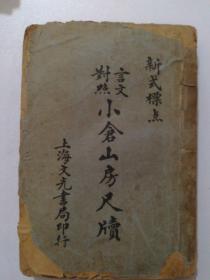 新式標点
言文
對照
小倉山房尺牘
上海文元書局印行